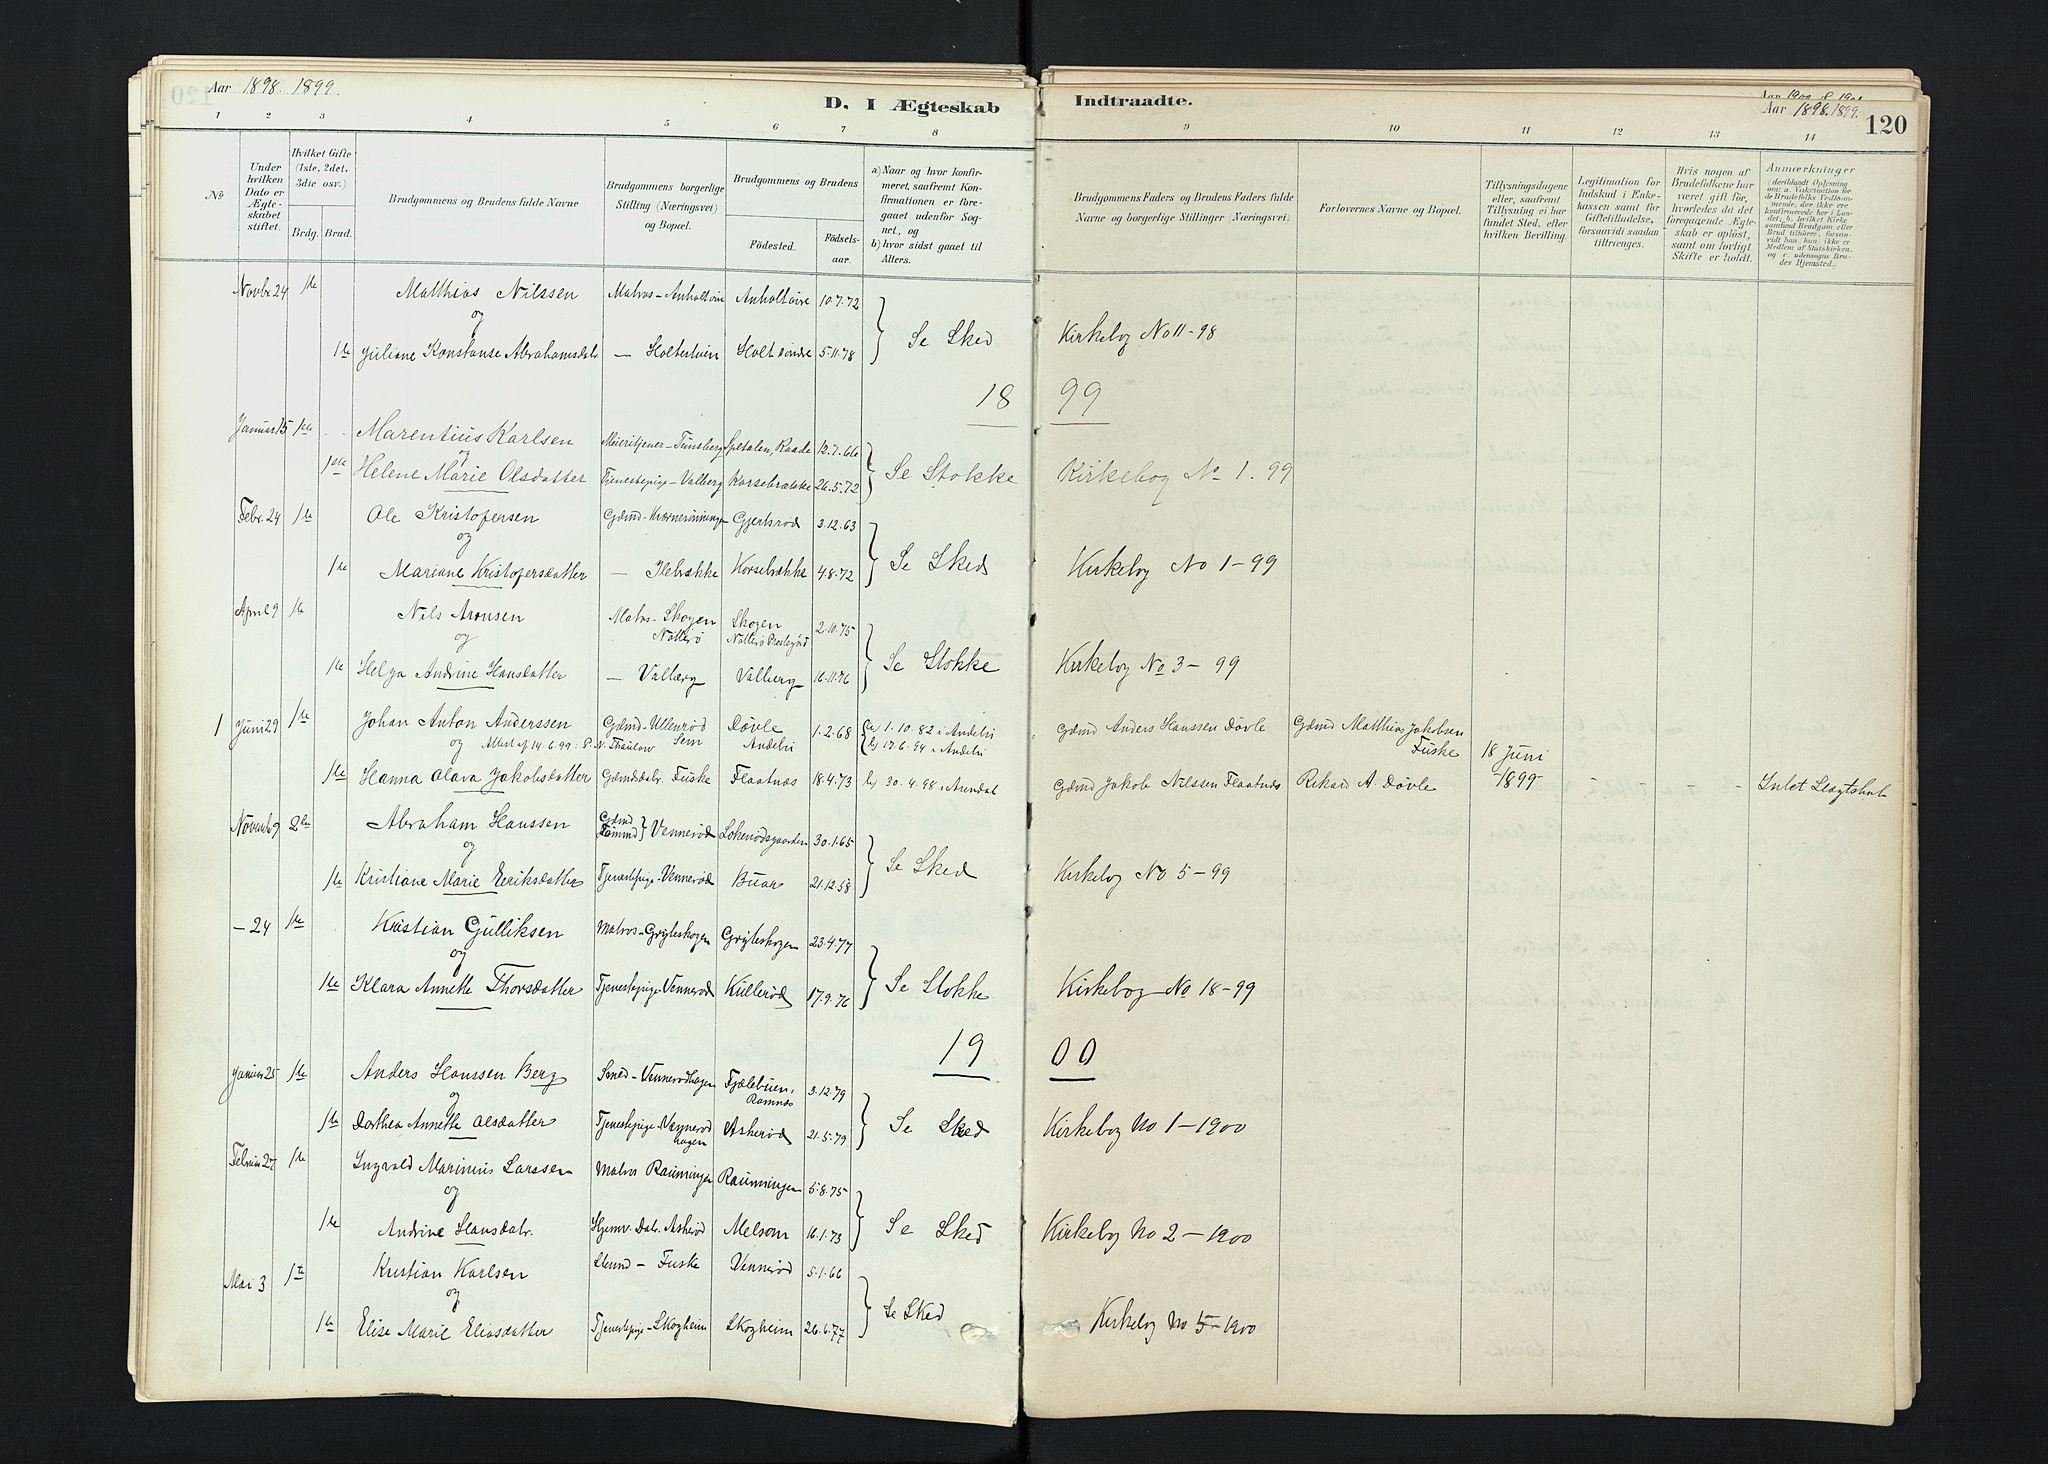 Aar 1898. 1899.
D. I Ægteskab
Indtraadte.
Aar 1898. 1899.
120
1 2 3 4 5 6 7 8
9 10 11 12 13 14
No
Under hvilken Dato er Ægteskabet stiftet.
Hvilket Gifte (1ste, 2det, 3die osv.)
Brdg. Brud.
Brudgommens og Brudens fulde Navne
Brudgommens borgerlige Stilling (Næringsvei) og Bopæl.
Brudgommens og Brudens
Fødested.
Fødselsaar.
a) Naar og hvor konfirmeret, saafremt Konfirmationen er foregaaet udenfor Sognet, og
b) hvor sidst gaaet til Alters.
Brudgommens Faders og Brudens Faders fulde Navne og borgerlige Stillinger (Næringsvei)
Forlovernes Navne og Bopæl.
Tillysningsdagene eller, saafremt Tillysning ei har fundet Sted, efter hvilken Bevilling.
Legitimation for Indskud i Enkekassen samt for Giftetilladelse, forsaavidt saadan tiltrænges.
Hvis nogen af Brudefolkene har været gift før, hvorledes da det foregaaende Ægteskab er opløst, samt om lovligt Skifte er holdt.
Anmærkninger
Novbr 24 1ste Matthias Nilssen Matros - Anholtåsen Anholtåsen 10.7.72
og
1ste Juliane Konstanse Abrahamsdatr. — Holtestuen Holt søndre 5.11.78
Se Sked Kirkebog No 11-98
18 99
Januar 15 1ste Marentius Karlsen Meieritjener - Tunsberg Spetalen, Raade 12.7.66
og
1ste Helene Marie Olsdatter Tjenestepige - Valberg Korsebrække 26.5.72
Se Stokke Kirkebog No 1. 99
Febr. 24 1ste Ole Kristofersen Gdmd - Kværnerønningen Gjertsrød 3.12.63
og
1ste Mariane Kristofersdatter — Ilebrække Korsebrække 4.8.72
Se Sked Kirkebog No 1-99
April 9 1ste Nils Aronsen Matros - Skogen Nøtterø Skogen Nøtterø Prestegård 2.10.75
og
1ste Helga Andrine Hansdatter — Valberg Valberg 16.11.76
Se Stokke Kirkebog No 3-99
1 Juni 29 1ste Johan Anton Anderssen Gdmd - Ullenrød Sem Døvle Andebi 1.2.68 a) 1.10.82 i Andebi b) 17.6.94 i Andebi Gdmd Anders Hanssen Døvle Gdmd Matthias Jakobsen Fuske
og Attest af 14.6.99: S.N. Thaulow
18 Juni 1899
1ste Hanna Olava Jakobsdatter Gdmdsdatr. Fuske Flaatnæs 18.4.73 b) 30.4.98 i Arendal Gdmd Jakob Nilssen Flaatnæs Rikard A. Døvle - - - - Intet Slægtskab
Novembr 9 2den Abraham Hanssen Gdmd Tømmd Vennerød Lokerødsgaarden 30.1.65
og
1ste Kristiane Marie Eeriksdatter Tjenestepige - Vennerød Buar 21.12.58
Se Sked Kirkebog No 5-99
- 24 1ste Kristian Gulliksen Matros - Gryteskogen Gryteskogen 23.4.77
og
1ste Klara Annette Thorsdatter Tjenestepige - Vennerød Kullerød 17.9.76
Se Stokke Kirkebog No. 18-99
19 00
Januar 25 1ste Anders Hanssen Berg Smed - Vennerødhagen Fjælebuen, Ramnæs 3.12.79
og
1ste Dorthea Annette Olsdatter Tjenestepige - Vennerødhagen Askerød 21.5.79
Se Sked Kirkebog No 1-1900
Februar 27 1ste Ingvald Marinius Larssen Matros Raumningen Raumningen 5.8.75
og
1ste Andrine Hansdatr. Hjemv. Datr. Askerød Melsom 16.1.73
Se Sked Kirkebog No 2-1900
Mai 3 1ste Kristian Karlsen - Fuske Vennerød 5.1.66
og
1ste Elise Marie Eliasdatter Tjenestepige - Skogheim Skogheim 26.6.77
Se Sked Kirkebog No 5-1900